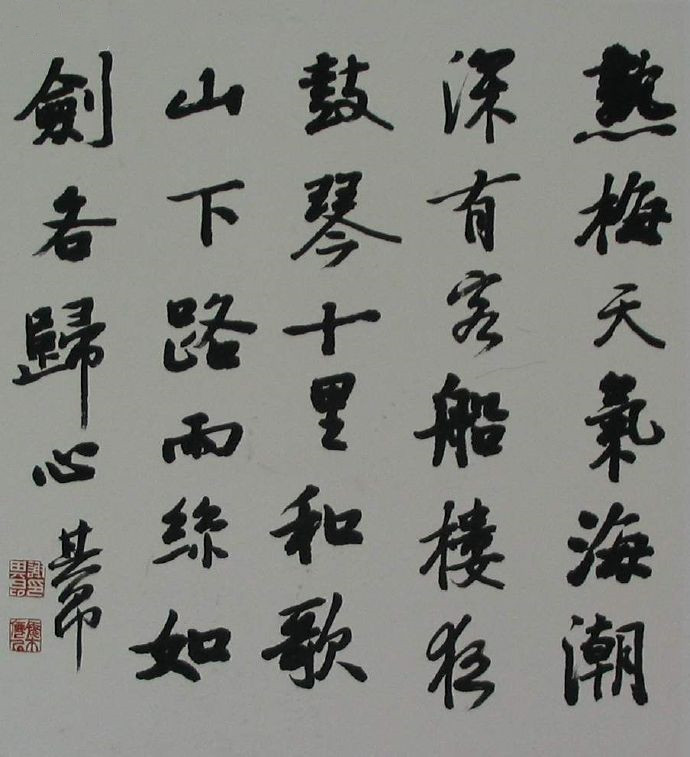 熟梅天氣海潮
深有客船樓狂
鼓琴十里和歌
山下路雨絲如
劍各歸心 其